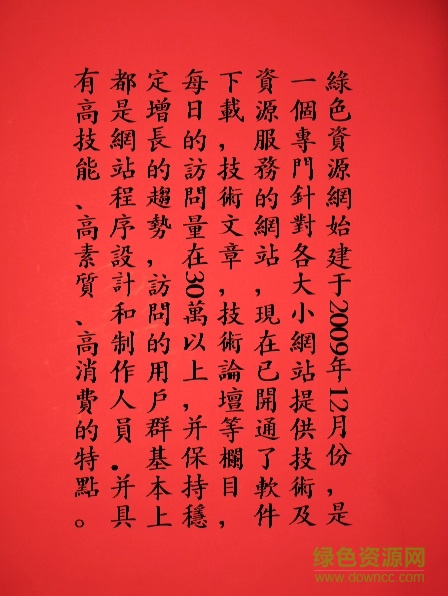 綠色資源網始建于2009年12月份，是
一個專門針對各大小網站提供技術及
資源服務的網站，現在已開通了軟件
下載，技術文章，技術論壇等欄目，
每日的訪問量在30萬以上，并保持穩
定增長的趨勢，訪問的用戶群基本上
都是網站程序設計和制作人員.并具
有高技能、高素質、高消費的特點。
绿色资源网
www.downcc.com